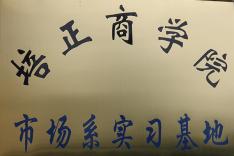 培正商学院
市场系实习基地